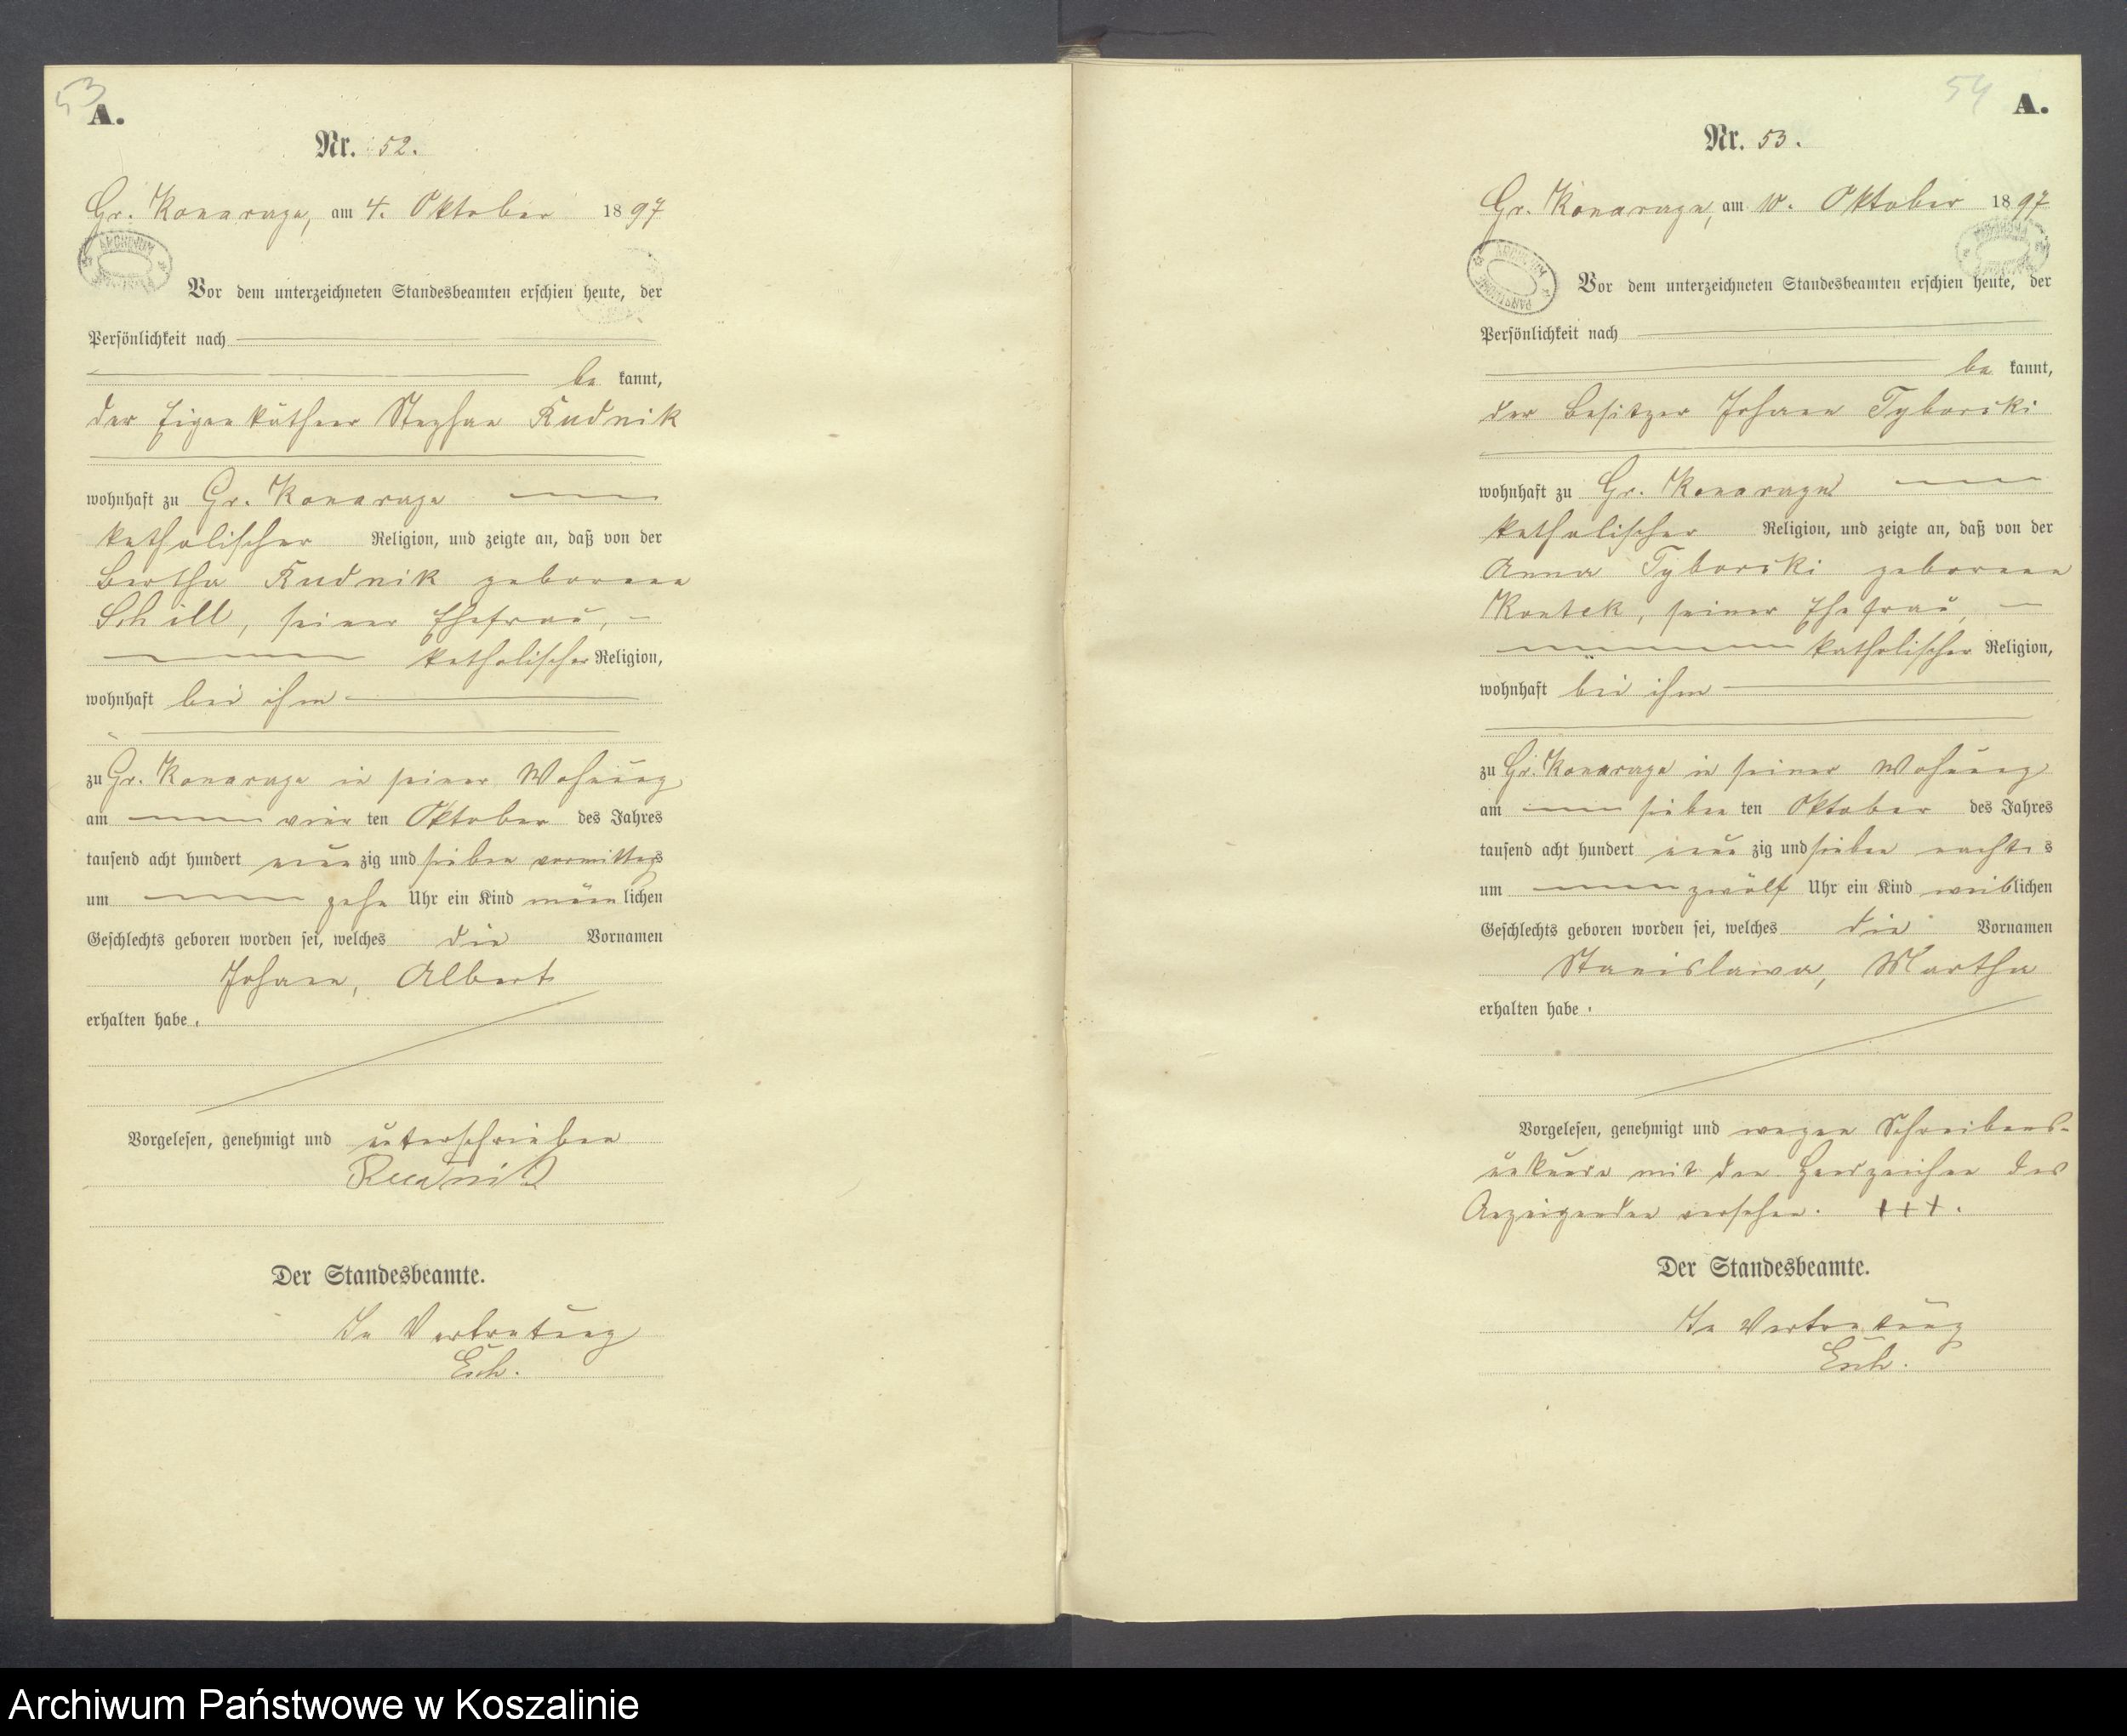 53
A.
Nr. 52.
Gr. Konarzyn, am 4. Oktober 1897
ARCHIWUM
Vor dem unterzeichneten Standesbeamten erschien heute, der
Persönlichkeit nach
be kannt,
der Eigenkäthner Stephan Rudnik
wohnhaft zu Gr. Konarzyn
katholischer Religion, und zeigte an, daß von der
Bertha Rudnik geborenen
Schill, seiner Ehefrau,
katholischer Religion,
wohnhaft bei ihm
zu Gr. Konarzyn in seiner Wohnung
am vier ten Oktober des Jahres
tausend acht hundert neun zig und sieben vormittags
um zehn Uhr ein Kind männlichen
Geschlechts geboren worden sei, welches die Vornamen
Johann, Albert
erhalten habe.
Vorgelesen, genehmigt und unterschrieben
Rudnik
Der Standesbeamte.
In Vertretung
54
A.
Nr. 53.
Gr. Konarzyn, am 10. Oktober 1897
ARCHIWUM
Vor dem unterzeichneten Standesbeamten erschien heute, der
Persönlichkeit nach
be kannt,
der Besitzer Johann Tyborski
wohnhaft zu Gr. Konarzyn
katholischer Religion, und zeigte an, daß von der
Anna Tyborski geborenen
Kontek, seiner Ehefrau,
katholischer Religion,
wohnhaft bei ihm
zu Gr. Konarzyn in seiner Wohnung
am sieben ten Oktober des Jahres
tausend acht hundert neun zig und sieben nachts
um zwölf Uhr ein Kind weiblichen
Geschlechts geboren worden sei, welches die Vornamen
Stanislawa, Martha
erhalten habe.
Vorgelesen, genehmigt und wegen Schreibens-
unkunde mit den Handzeichen des
Anzeigenden versehen. +++.
Der Standesbeamte.
In Vertretung
Archiwum Państwowe w Koszalinie